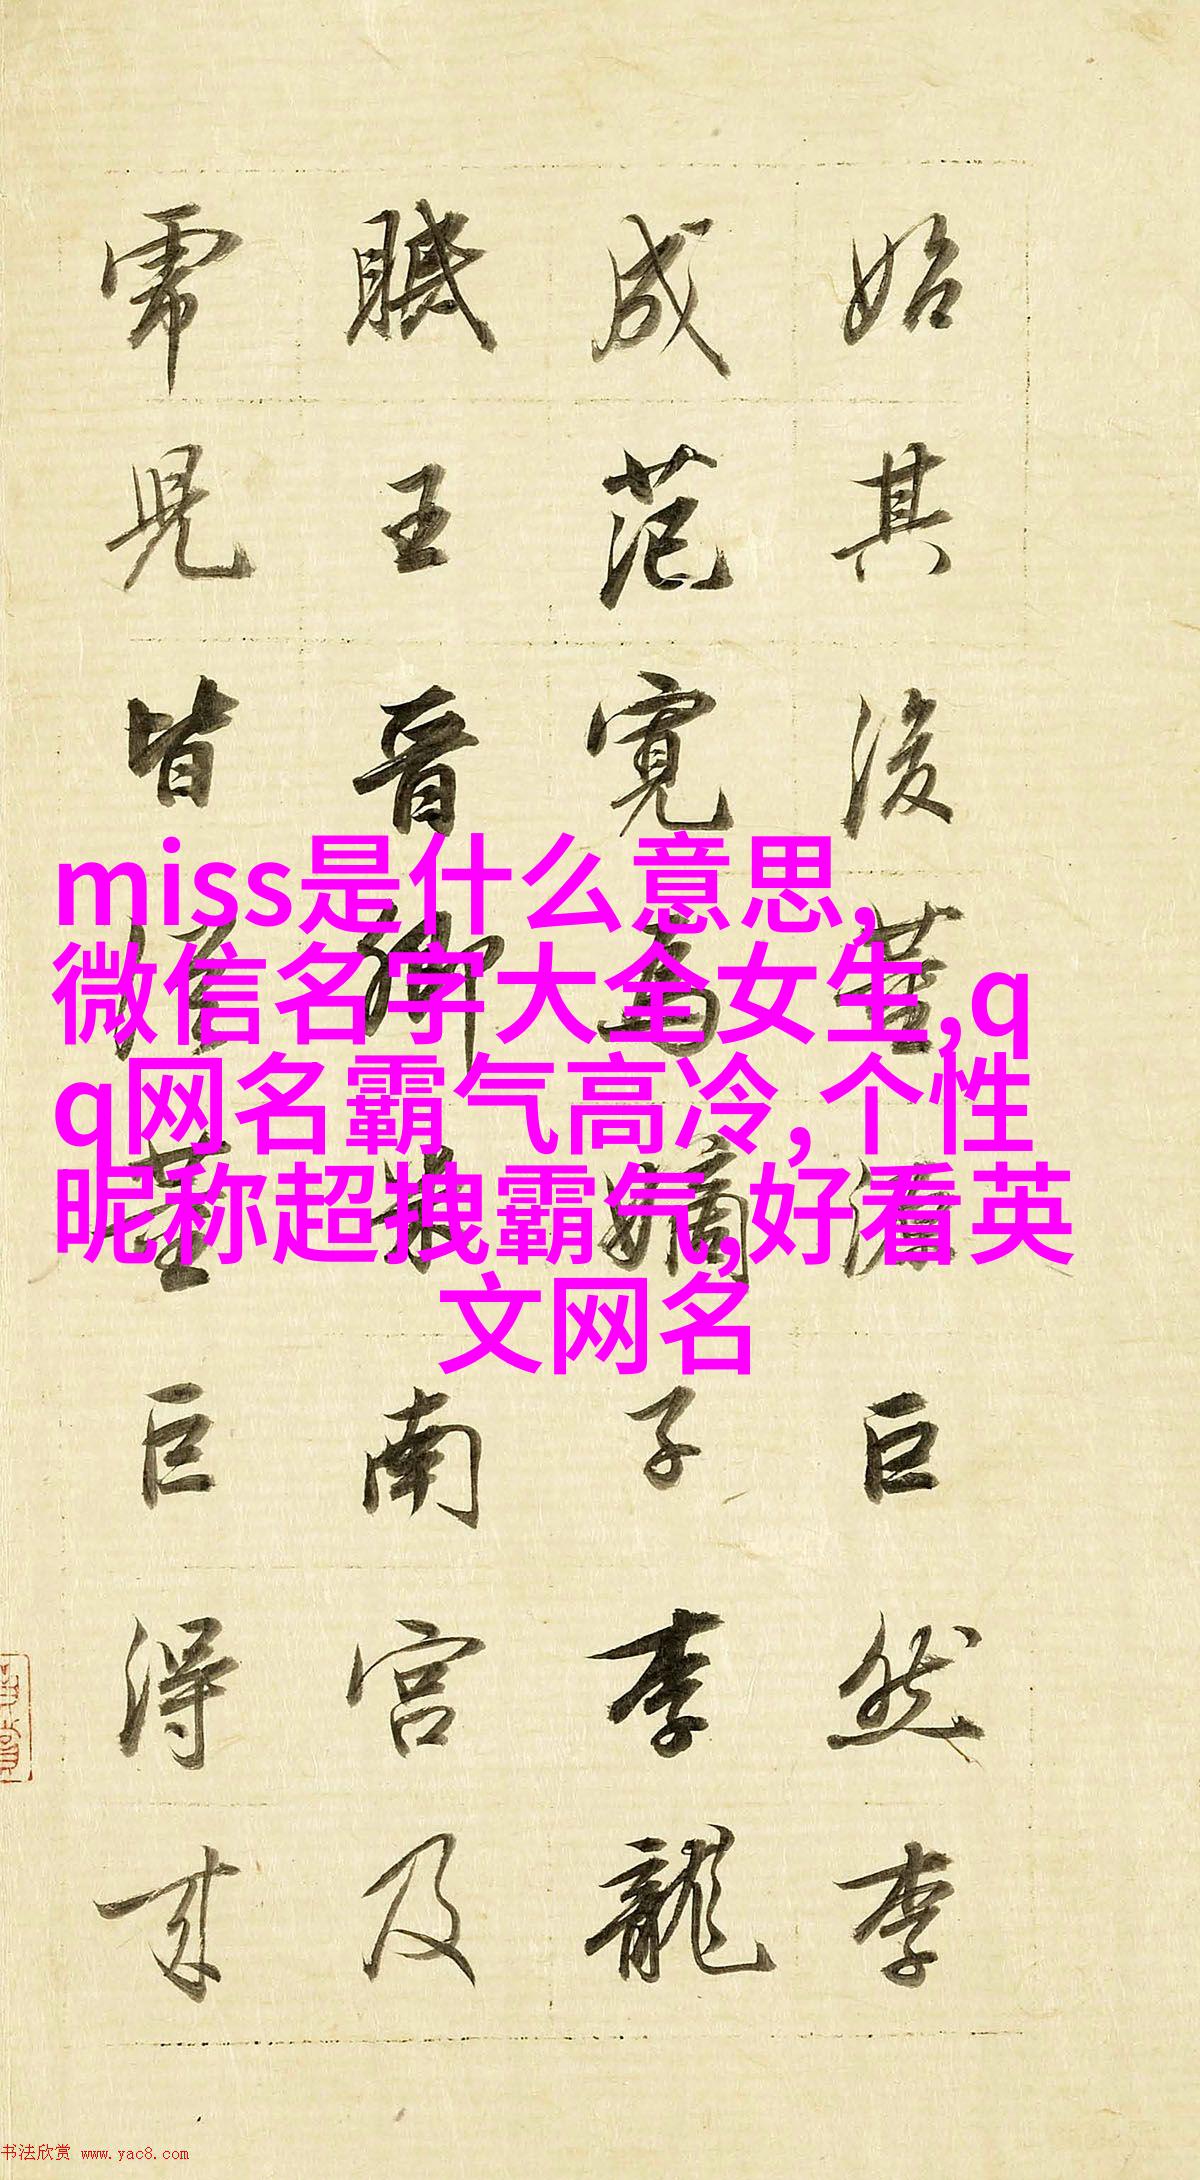 始其後董源巨然李
成范寬為嫡子李龍
眠王晉卿米南宮及
虎兒皆從董巨得来
miss是什么意思,
微信名字大全女生,q
q网名霸气高冷,个性
昵称超拽霸气,好看英
文网名
书法欣赏 www.yac8.com